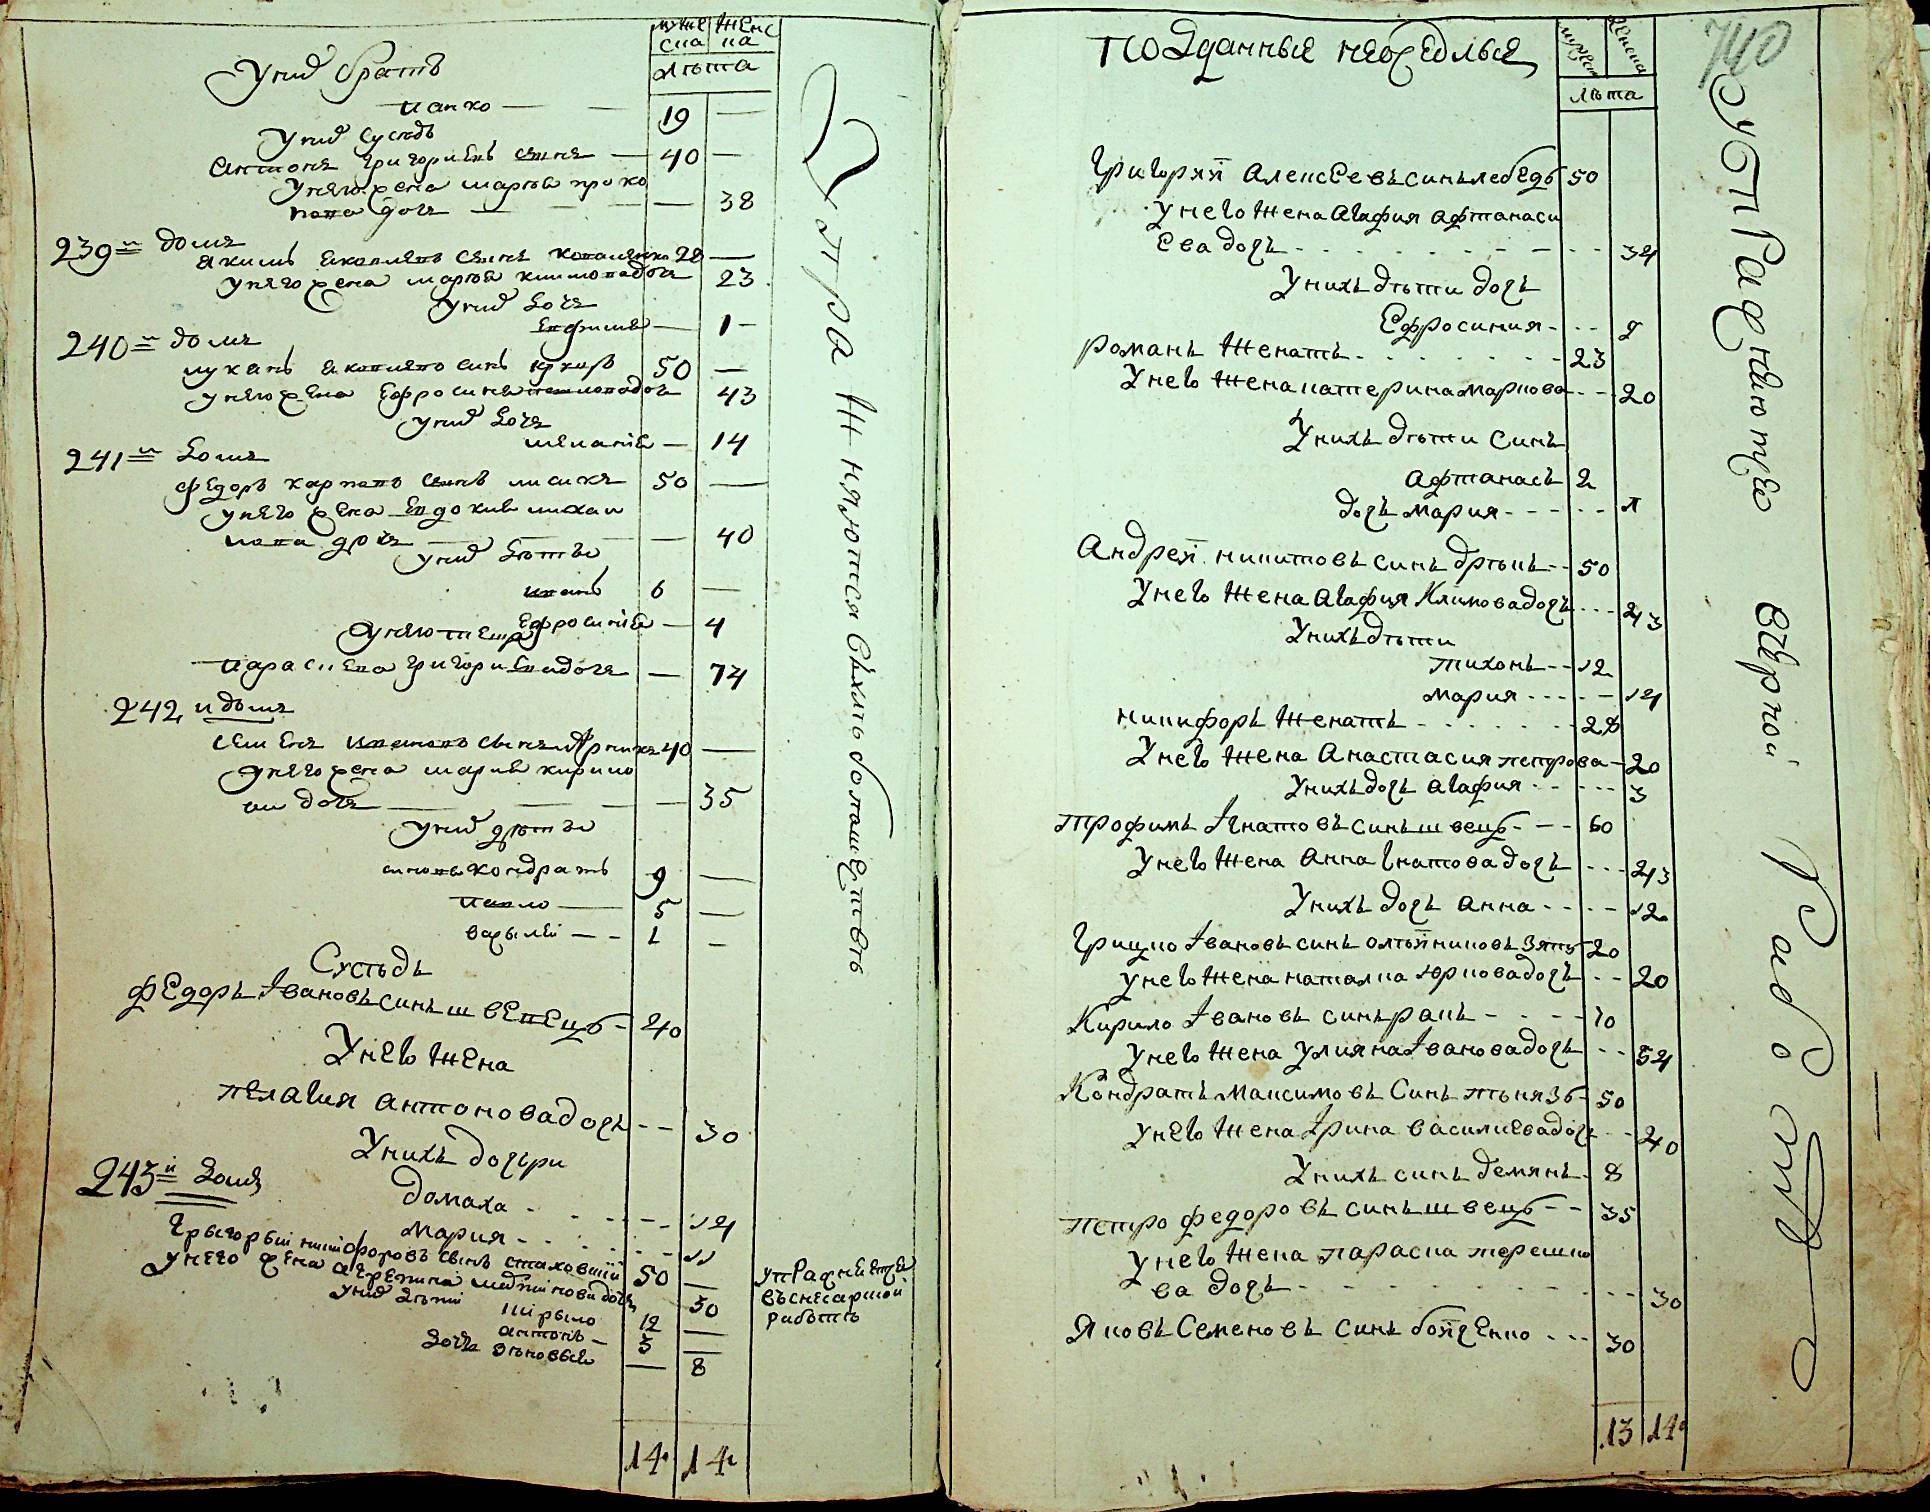 мужеска женска
лѣта
У них братъ
Павко — — 19 —
У них сусѣдъ
Антонъ Григориевъ синъ — 40 —
У него жена Марѳа Проко
пова дочъ — — — 38
239й домъ
Якимъ Яковлевъ синъ Коваленко 28 —
У него жена Марѳа Климова дочъ 23
У них дочъ
Евфимѣя — 1 —
240й домъ
Лукаянъ Яковлевъ синъ 50 —
У него жена Ефросинѣя дочъ 43
У них дочъ
Меланѣя — 14
241й домъ
Федоръ Карповъ синъ Лисика 50 —
У него жена Евдокия Михаи
лова дочъ — — — 40
У них дѣти
Иванъ 6 —
Ефросинѣя — 4
У него теща
Параскева Григориева дочъ — 74
242й домъ
Семенъ синъ 40 —
У него жена Мария Кирило
ва дочъ — — — 35
У них дѣти
синовъ Кондратъ 9 —
Павло — 5 —
Василей — — 1 —
Сусѣдъ
Федоръ Івановъ синъ Швецъ - 40
У него жена
Пелагия Антонова дочъ - - 30
У нихъ дочъри
Домаха - - - - - 14
Мария - - - - - 11
243й домъ
Грыгорый Никифоровъ синъ 50 —
У него жена Агрепина дочъ 50
У них дѣти
Кирыло 12 —
Антонъ — 3 —
дочъ Зѣновья — 8
упражнеется
въ слесарной
работѣ
14 14
Упражняются въ хлѣбопашествѣ
740
Подданные несѣдлые
мужеска женска
лѣта
Григорий Алексеевъ синъ Лебедь 50
У него жена Агафия Афтанаси
ева дочъ - - - - 34
У нихъ дѣти дочъ
Ефросиния - - - 9
Романъ женатъ - - - - 23
У него жена Катерина Маркова - - 20
У нихъ дѣти синъ
Афтанасъ 2
дочъ Мария - - - - 1
Андрей Никитовъ синъ - - 50
У него жена Агафия Климова дочъ - - - 43
У нихъ дѣти
Тихонъ - - 12
Мария - - - - 14
Никифоръ женатъ - - - - 28
У него жена Анастасия Петрова - 20
У нихъ дочъ Агафия - - - - 3
Трофимъ Ігнатовъ синъ Швецъ - - - 60
У него жена Анна Ігнатова дочъ - - - 43
У нихъ дочъ Анна - - - - 12
Грицко Івановъ синъ Олѣйниковъ зять - 20
У него жена Наталка Юркова дочъ - - 20
Кирило Івановъ синъ Ракъ - - - 70
У него жена Улияна Іванова дочъ - - 54
Кондратъ Максимовъ синъ - 50
У него жена Ірина Василиева дочъ - - 40
У нихъ синъ Демянъ - 8
Петро Федоровъ синъ Швецъ - - 35
У него жена Параска Терешко
ва дочъ - - - - - 30
Яковъ Семеновъ синъ Бойченко - - - 30
13 14
Упражняются в черной работѣ